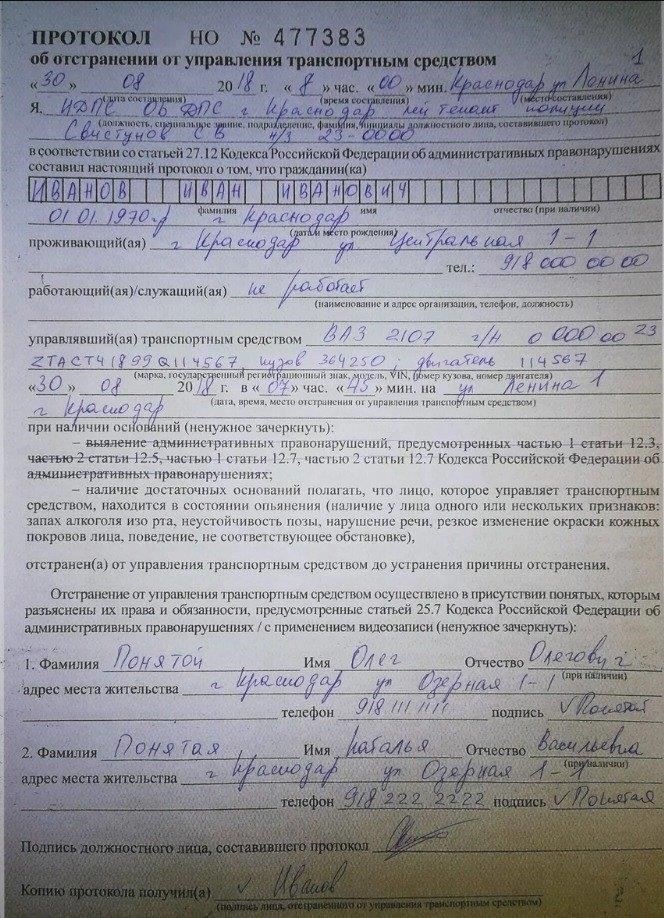 ПРОТОКОЛ НО № 477383
об отстранении от управления транспортным средством
« 30 » 08 2018 г. « 8 » час. « 00 » мин. Краснодар ул Ленина 1
(дата составления) (время составления) (место составления)
Я, ИДПС ОБ ДПС г Краснодар лейтенант полиции
(должность, специальное звание, подразделение, фамилия, инициалы должностного лица, составившего протокол)
Свистунов С В н/з 23-0000
в соответствии со статьей 27.12 Кодекса Российской Федерации об административных правонарушениях
составил настоящий протокол о том, что гражданин(ка)
ИВАНОВ ИВАН ИВАНОВИЧ
фамилия имя отчество (при наличии)
01 01. 1970 г г Краснодар
(дата и место рождения)
проживающий(ая) г Краснодар ул Центральная 1-1
тел.: 918 000 00 00
работающий(ая)/служащий(ая) не работает
(наименование и адрес организации, телефон, должность)
управлявший(ая) транспортным средством ВАЗ 2107 г/н о 000 оо 23
ZTACT41899Q114567 кузов 364250 двигатель 114567
(марка, государственный регистрационный знак, модель, VIN, номер кузова, номер двигателя)
« 30 » 08 2018 г. в « 07 » час. « 45 » мин. на ул Ленина 1
(дата, время, место отстранения от управления транспортным средством)
г Краснодар
при наличии оснований (ненужное зачеркнуть):
– выяление административных правонарушений, предусмотренных частью 1 статьи 12.3,
частью 2 статьи 12.5, частью 1 статьи 12.7, частью 2 статьи 12.7 Кодекса Российской Федерации об
административных правонарушениях;
– наличие достаточных оснований полагать, что лицо, которое управляет транспортным
средством, находится в состоянии опьянения (наличие у лица одного или нескольких признаков:
запах алкоголя изо рта, неустойчивость позы, нарушение речи, резкое изменение окраски кожных
покровов лица, поведение, не соответствующее обстановке),
отстранен(а) от управления транспортным средством до устранения причины отстранения.
Отстранение от управления транспортным средством осуществлено в присутствии понятых, которым
разъяснены их права и обязанности, предусмотренные статьей 25.7 Кодекса Российской Федерации об
административных правонарушениях / с применением видеозаписи (ненужное зачеркнуть):
1. Фамилия Понятой Имя Олег Отчество Олегович
(при наличии)
адрес места жительства г Краснодар ул Озерная 1-1
телефон 918 111 11 11 подпись v Понятой
2. Фамилия Понятая Имя Наталья Отчество Васильевна
(при наличии)
адрес места жительства г Краснодар ул Озерная 1-1
телефон 918 222 2222 подпись v Понятая
Подпись должностного лица, составившего протокол
Копию протокола получил(а) v Иванов
(подпись лица, отстраненного от управления транспортным средством)